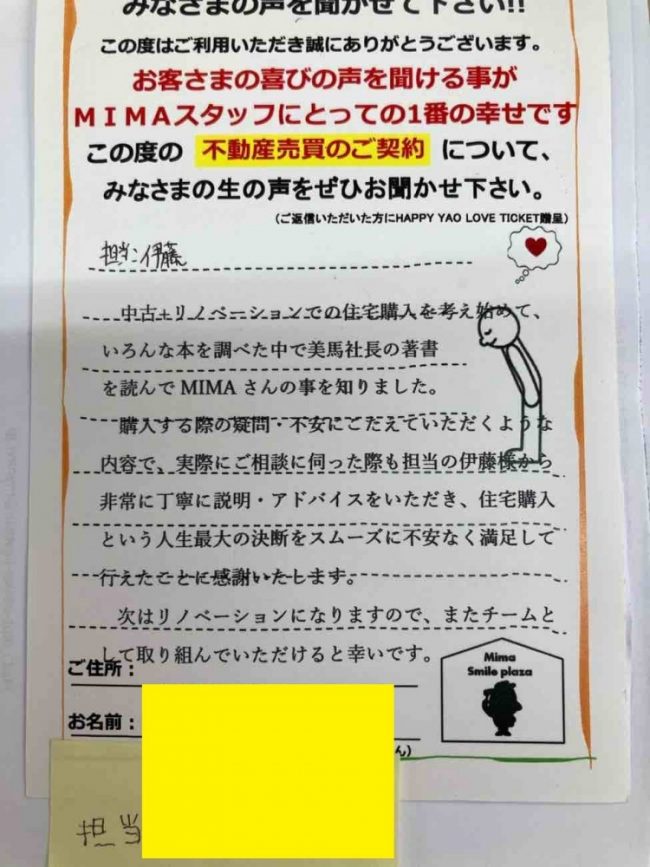 みなさまの声を聞かせて下さい!!
この度はご利用いただき誠にありがとうございます。
お客さまの喜びの声を聞ける事が
MIMAスタッフにとっての1番の幸せです
この度の 不動産売買のご契約 について、
みなさまの生の声をぜひお聞かせ下さい。
(ご返信いただいた方にHAPPY YAO LOVE TICKET贈呈)
担当:伊藤
中古+リノベーションでの住宅購入を考え始めて、
いろんな本を調べた中で美馬社長の著書
を読んで MIMA さんの事を知りました。
購入する際の疑問・不安にこたえていただくような
内容で、実際にご相談に伺った際も担当の伊藤様から
非常に丁寧に説明・アドバイスをいただき、住宅購入
という人生最大の決断をスムーズに不安なく満足して
行えたことに感謝いたします。
次はリノベーションになりますので、またチームと
して取り組んでいただけると幸いです。
Mima
Smile plaza
ご住所:
お名前:
ん)
担当